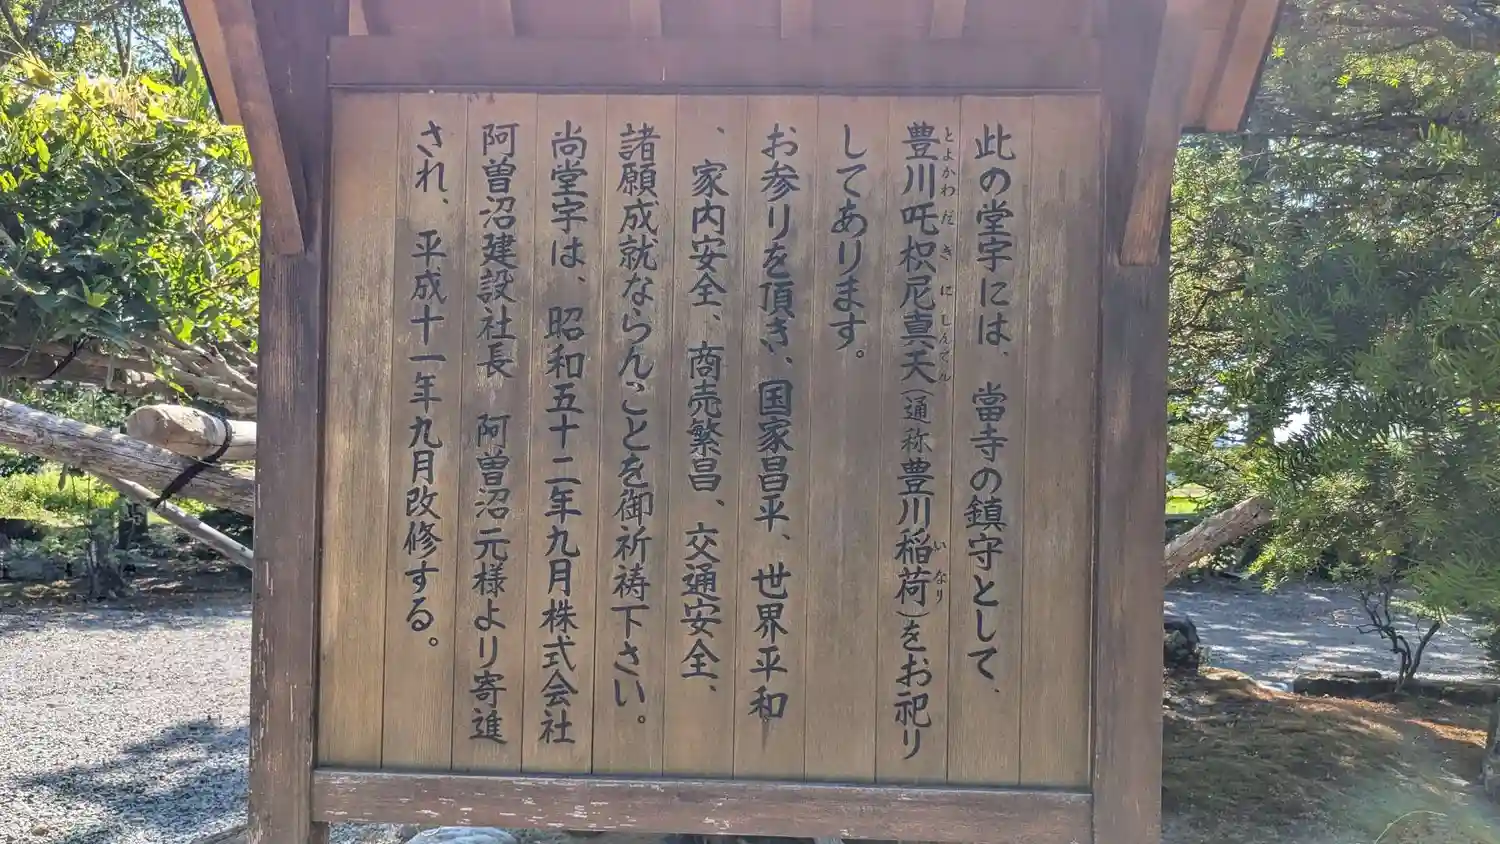 此の堂宇には、當寺の鎮守として、
豊川吒枳尼真天(通称豊川稲荷)をお祀り
とよかわだきにしんてん
いなり
してあります。
お参りを頂き、国家昌平、世界平和
、家内安全、商売繁昌、交通安全、
諸願成就ならんことを御祈祷下さい。
尚堂宇は、昭和五十二年九月株式会社
阿曽沼建設社長 阿曽沼元様より寄進
され、平成十一年九月改修する。